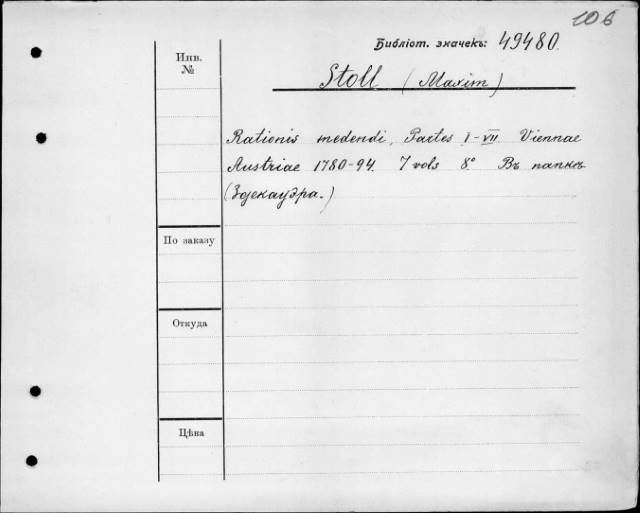 106
Библіот. значекъ: 49480.
Инв.
№
Stoll (Maxim)
Rationis medendi, Partes I-VII. Viennae
Austriae 1780-94. 7 vols 8° Въ папкѣ
(Здекауэра.)
По заказу
Откуда
Цѣна